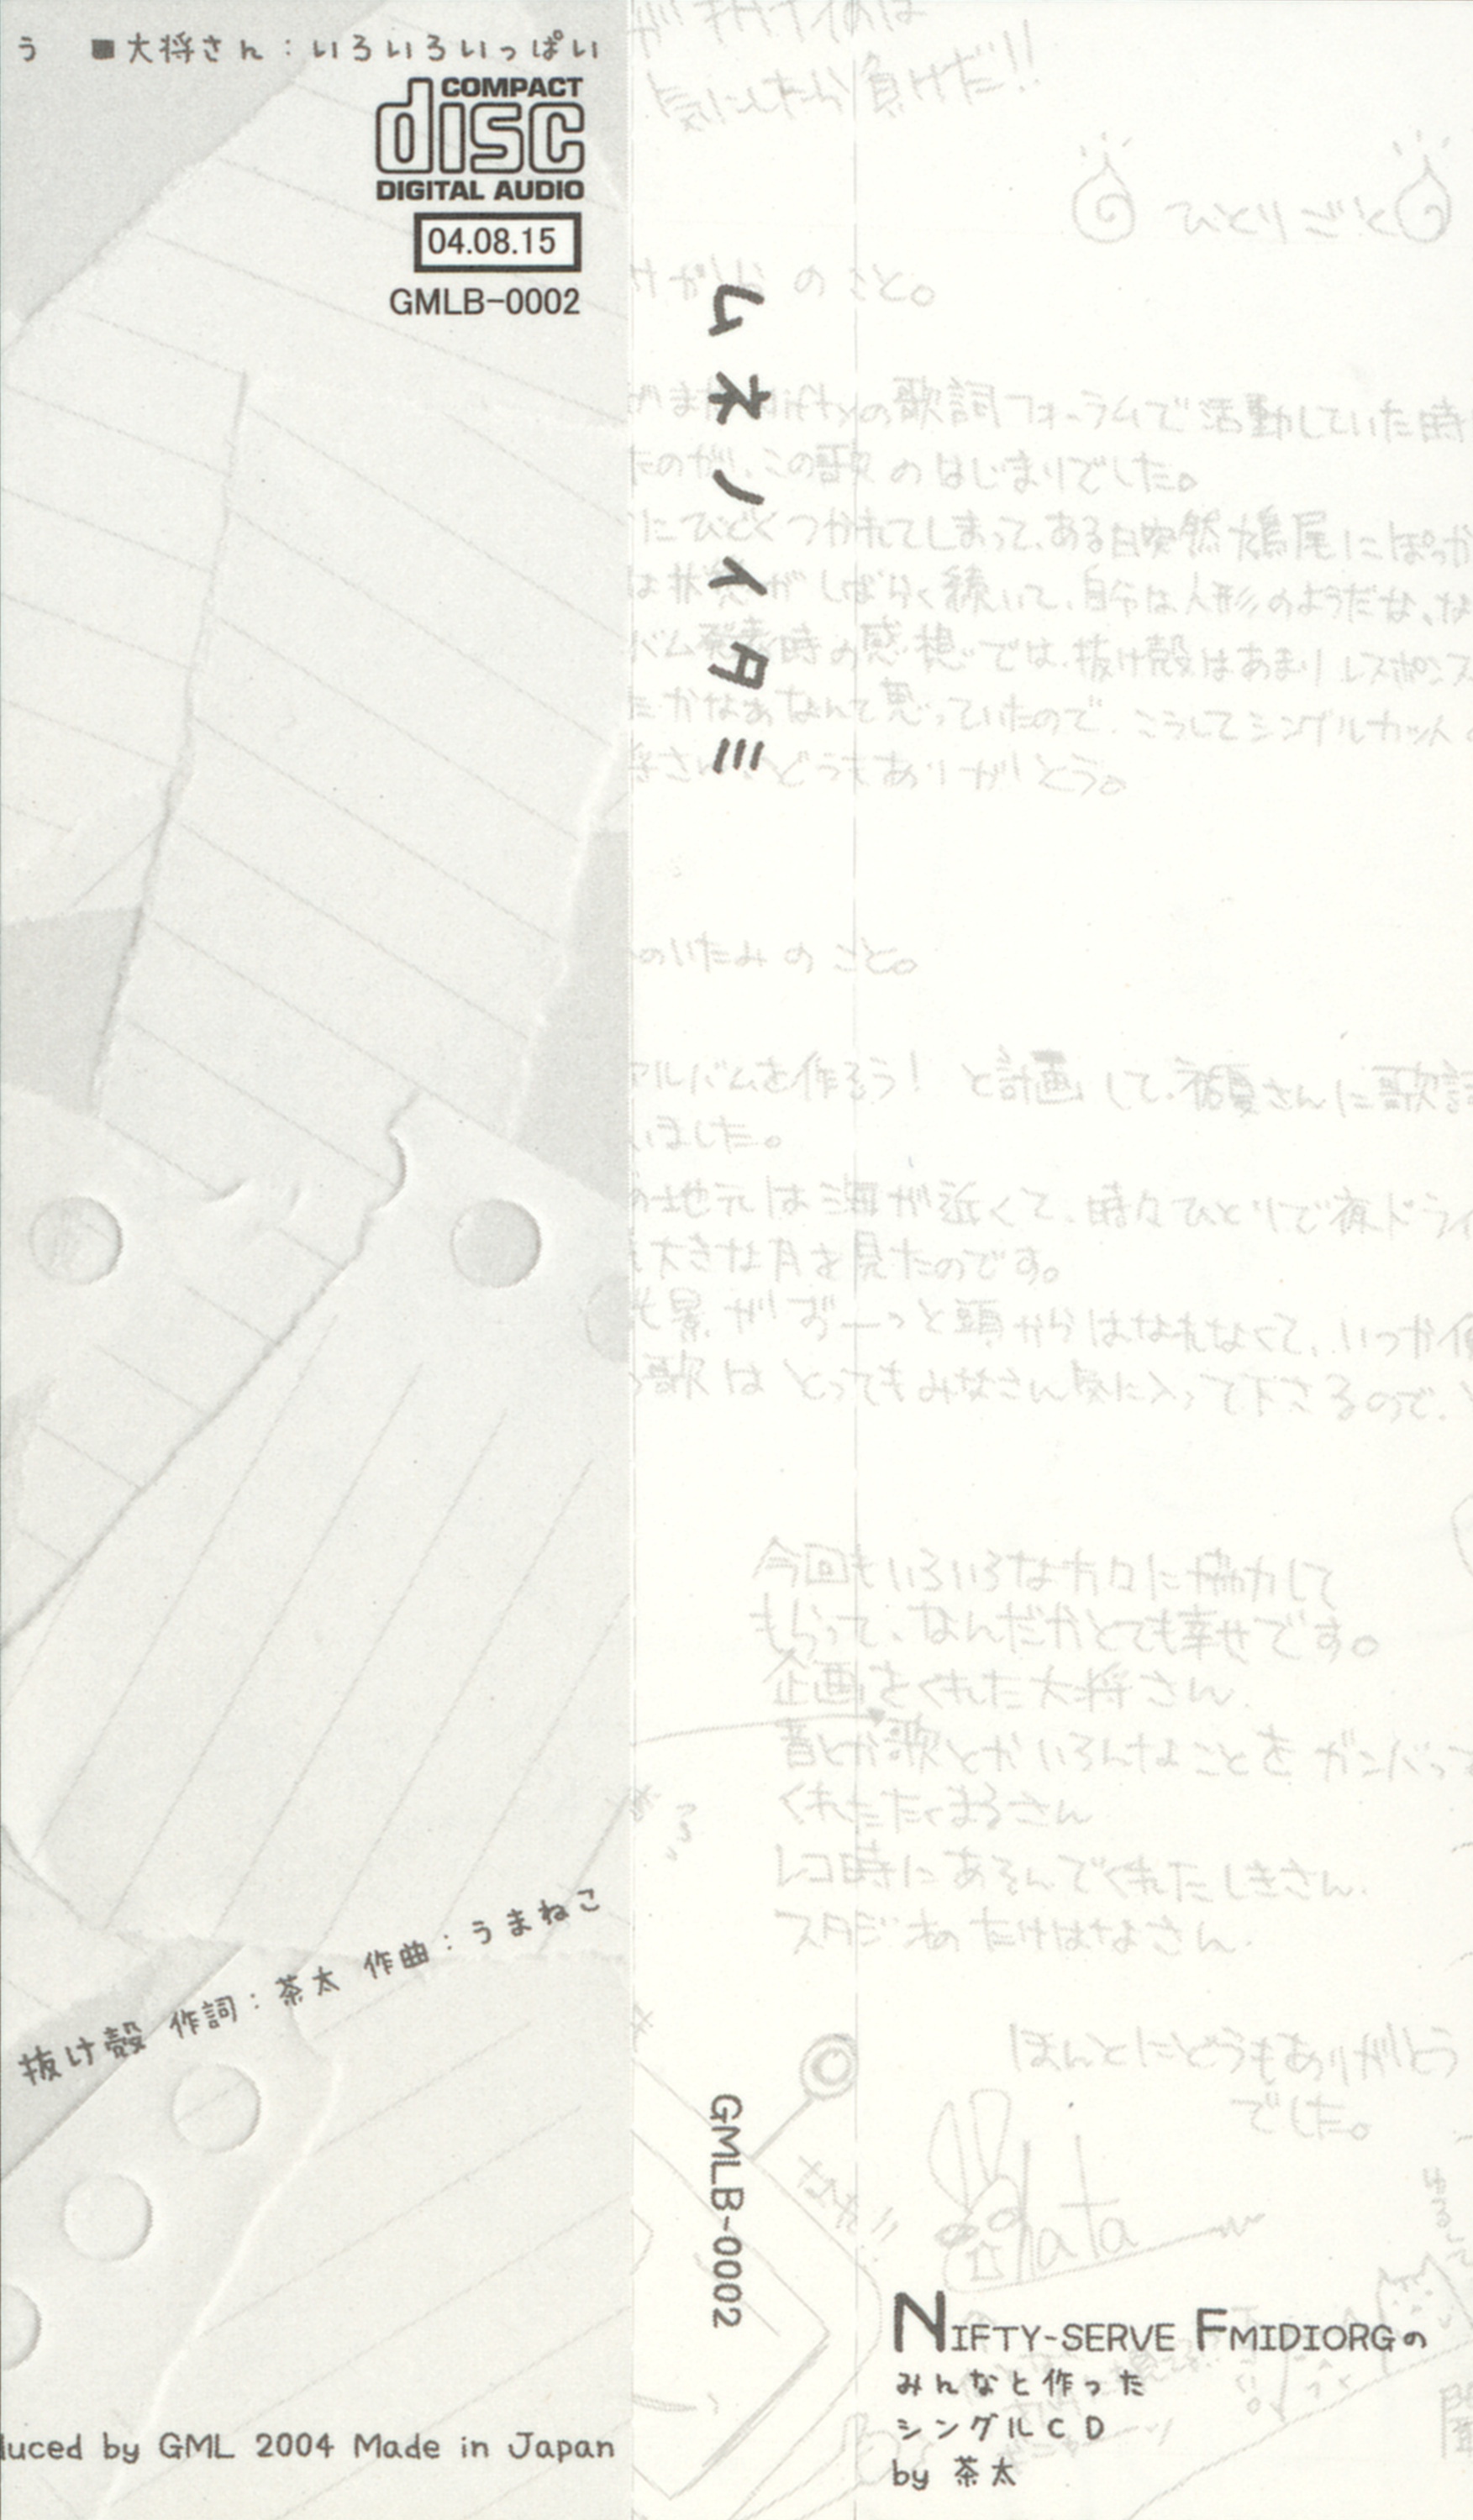 う ■大将さん：いろいろいっぱい
COMPACT
disc
DIGITAL AUDIO
04.08.15
GMLB-0002
抜け殻 作詞：茶太 作曲：うまねこ
duced by GML 2004 Made in Japan
ムネノイタミ
GMLB-0002
気にしたら負けだ!!
ひとりごと
のこと。
niftyの歌詞フォーラムで活動していた時
たのが、この歌のはじまりでした。
にひどくつかれてしまって、ある日突然鳩尾にぽっか
は状態がしばらく続いて、自分は人形のようだな、な
バム発表時の感想では、抜け殻はあまりレスポンス
たかなぁなんて思っていたので、こうしてシングルカット
さん、どうもありがとう。
のいたみのこと。
アルバムを作ろう！ と計画して、
さんに歌詞
いました。
の地元は海が近くて、時々ひとりで夜ドライ
大きな月を見たのです。
光景がずーっと頭からはなれなくて、いつか
歌はとってもみなさん気に入って下さるので、
今回もいろいろな方々に協力して
もらって、なんだかとても幸せです。
企画をくれた大将さん、
音とか歌とかいろんなことをガンバって
くれたたくまるさん
レコ時にあそんでくれたしきさん、
スタジオのたけはなさん、
ほんとにどうもありがとう
でした。
chata
NIFTY-SERVE FMIDIORGの
みんなと作った
シングルCD
by 茶太